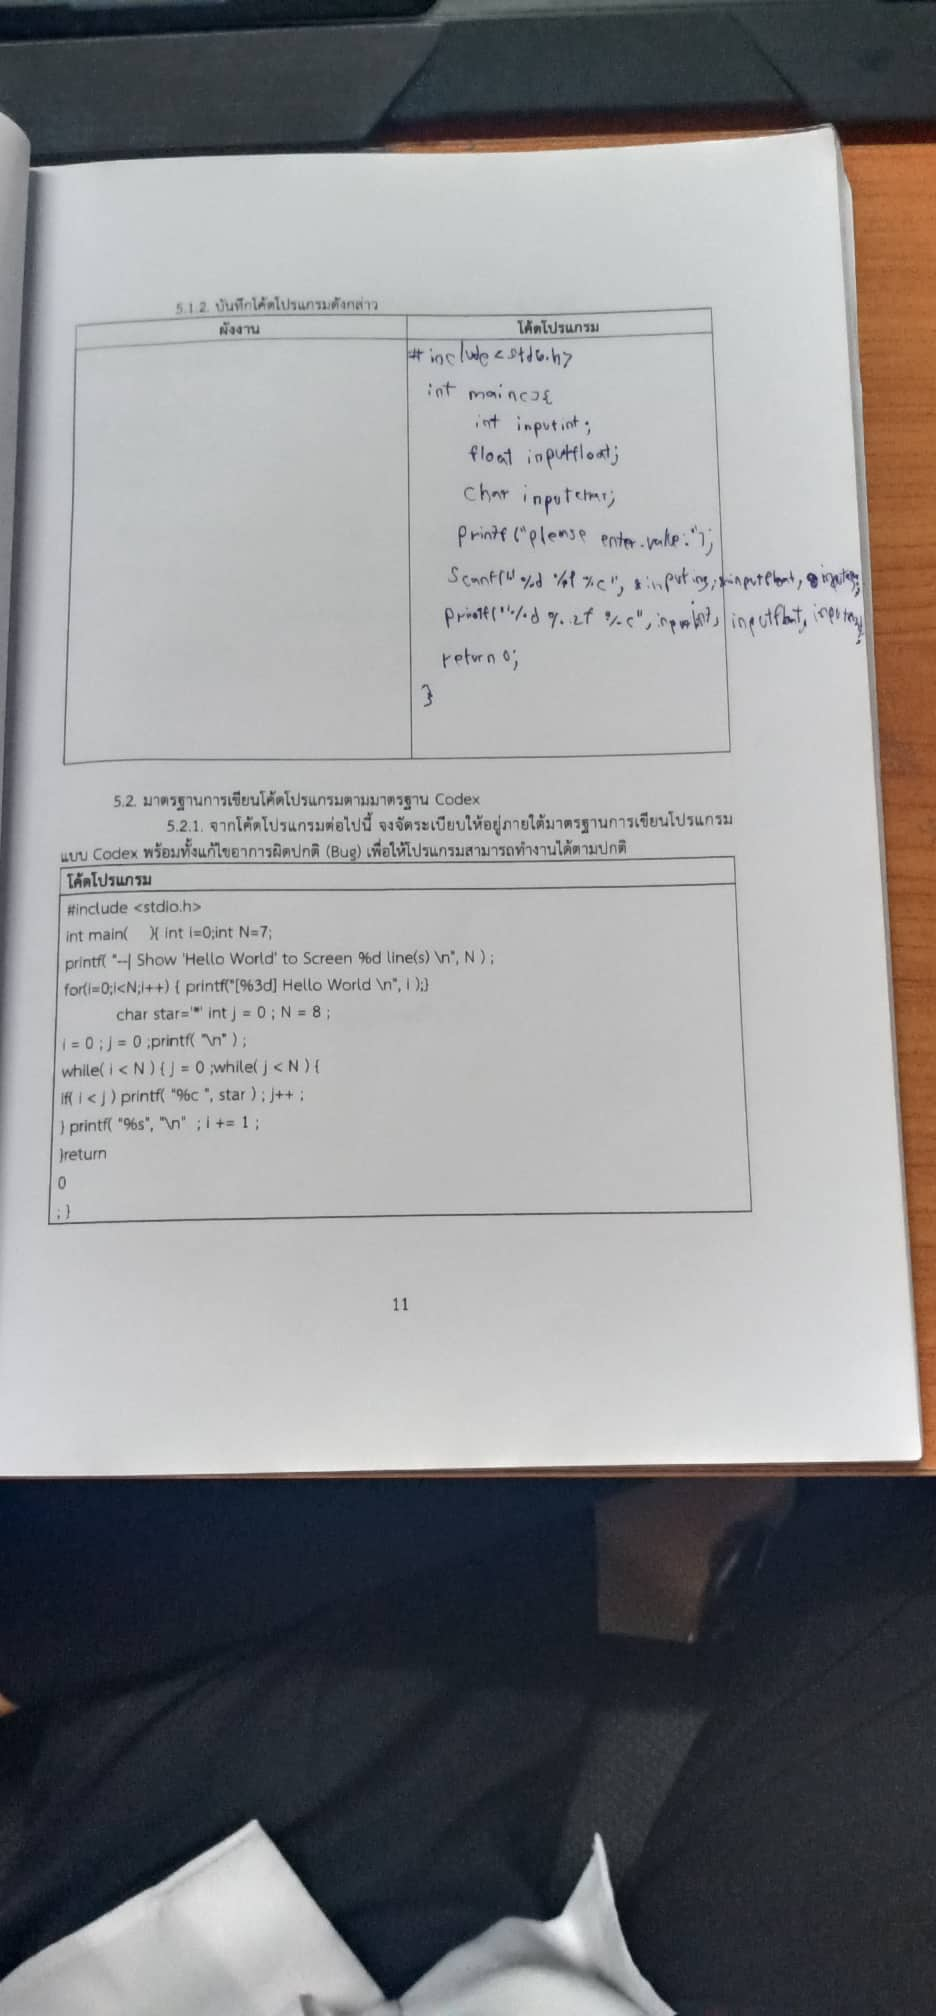 5.1.2. บันทึกโค้ดโปรแกรมดังกล่าว
ผังงาน
โค้ดโปรแกรม
#include<stdio.h>
int main(){
int inputint;
float inputfloat;
char inputchar;
printf("please enter value:");
Scanf("%d %f %c", &inputing, &inputfloat,
printf("%d %.2f %c", inputint, inputfloat, inputchar;
return 0;
}
5.2. มาตรฐานการเขียนโค้ดโปรแกรมตามมาตรฐาน Codex
5.2.1. จากโค้ดโปรแกรมต่อไปนี้ จงจัดระเบียบให้อยู่ภายใต้มาตรฐานการเขียนโปรแกรม
แบบ Codex พร้อมทั้งแก้ไขอาการผิดปกติ (Bug) เพื่อให้โปรแกรมสามารถทำงานได้ตามปกติ
โค้ดโปรแกรม
#include <stdio.h>
int main( ){ int i=0;int N=7;
printf( "--| Show 'Hello World' to Screen %d line(s) \n", N ) ;
for(i=0;i<N;i++) { printf("[%3d] Hello World \n", i );}
char star='*' int j = 0 ; N = 8 ;
i = 0 ; j = 0 ;printf( "\n" ) ;
while( i < N ) { j = 0 ;while( j < N ) {
if( i < j ) printf( "%c ", star ) ; j++ ;
} printf( "%s", "\n" ; i += 1 ;
}return
0
; }
11